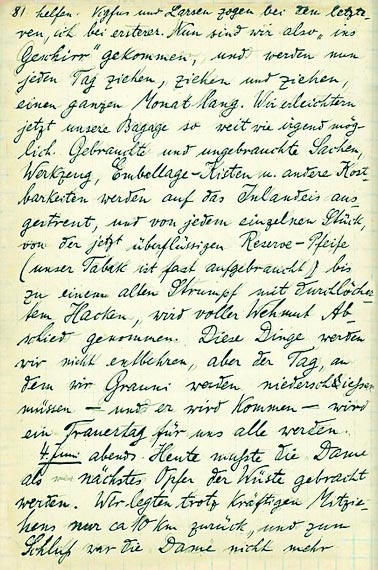 81 helfen. Vigfus und Larsen zogen bei den letzte-
ren, ich bei ersterer. Nun sind wir also „ins
Geschirr" gekommen, und werden nun
jeden Tag ziehen, ziehen und ziehen,
einen ganzen Monat lang. Wir erleichtern
jetzt unsere Bagage so weit wie irgend mög-
lich. Gebrauchte und ungebrauchte Sachen,
Werkzeug, Emballage-Kisten u. andere Kost-
barkeiten werden auf das Inlandeis aus-
gestreut, und von jedem einzelnen Stück,
von der jetzt überflüssigen Reserve-Pfeife
(unser Tabak ist fast aufgebraucht) bis
zu einem alten Strumpf mit durchlöcher-
tem Hacken, wird voller Wehmut Ab-
schied genommen. Diese Dinge werden
wir nicht entbehren, aber der Tag, an
dem wir Grauni werden niederschiessen
müssen — und er wird kommen — wird
ein Trauertag für uns alle werden.
4. Juni abends. Heute mußte die Dame
als nächstes Opfer der Wüste gebracht
werden. Wir legten trotz kräftigen Mitzie-
hens nur ca 10 km zurück, und zum
Schluß war die Dame nicht mehr